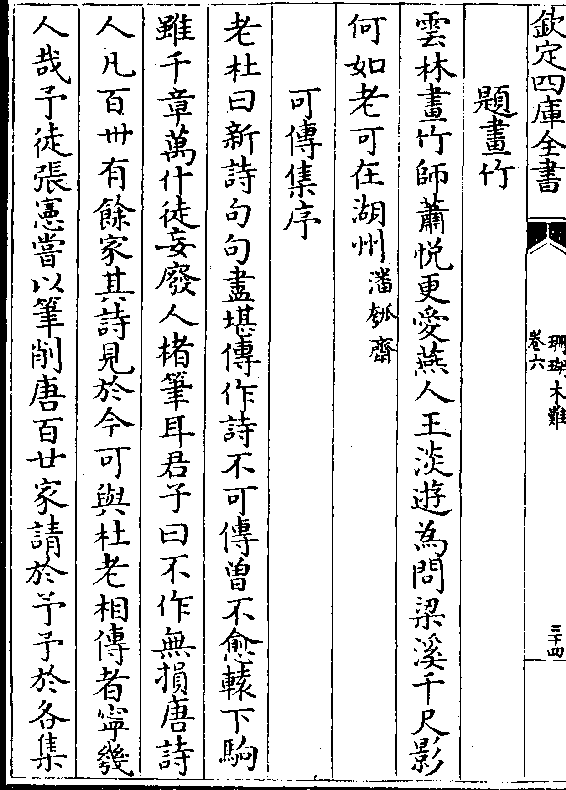 欽定四庫全書
珊瑚木難
卷六
三十四
題畫竹
雲林畫竹師蕭悅更愛燕人王淡逰為問梁溪千尺影
何如老可在湖州潘瓠齋
可傳集序
老杜曰新詩句句盡堪傳作詩不可傳曽不愈轅下駒
雖千章萬什徒妄廢人楮筆耳君子曰不作無損唐詩
人凡百卅有餘家其詩見於今可與杜老相傳者寧幾
人哉予徒張憲嘗以筆削唐百廿家請於予予於各集